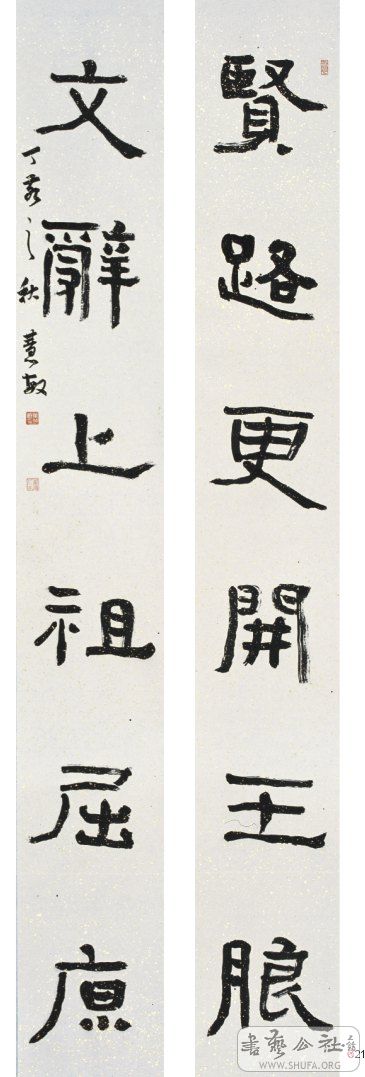 賢路更開王朖
文辭上祖屈原
丁亥之秋 慧敏
書藝公社
WWW.SHUFA.ORG
21